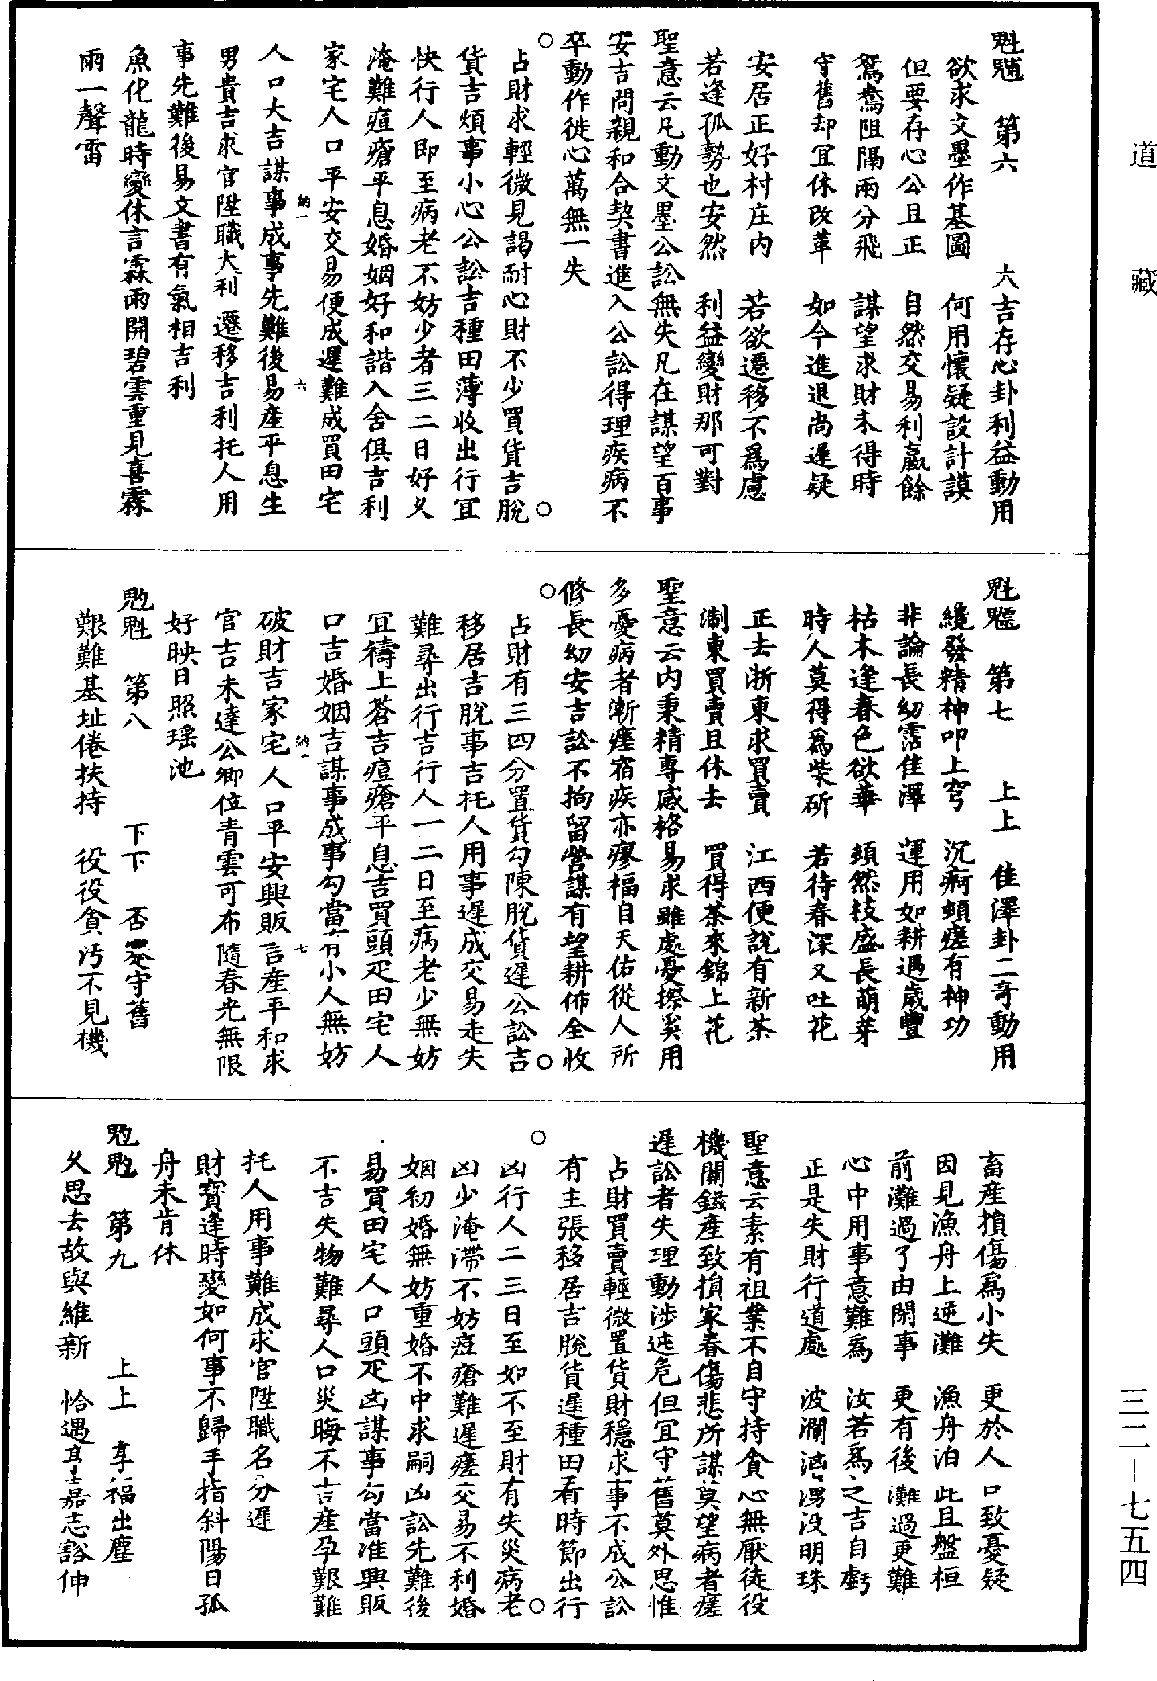 道藏
魁魒 第六 六吉存心卦利益動用
欲求文墨作基圖 何用懷疑設計謨
但要存心公且正 自然交易利贏餘
鴛鴦阻隔兩分飛 謀望求財未得時
守舊却宜休改革 如今進退尚遲疑
安居正好村庄內 若欲遷移不爲慮
若逢孤勢也安然 利益變財那可對
聖意云凡動文墨公訟無失凡在謀望百事
安吉問親和合契書進入公訟得理疾病不
卒動作徙心萬無一失
占財求輕微見謁耐心財不少買貨吉脫
貨吉煩事小心公訟吉種田薄收出行宜
快行人即至病老不妨少者三二日好久
淹難痘瘡平息婚姻好和諧入舍俱吉利
家宅人口平安交易便成遲難成買田宅
人口大吉謀事成事先難後易產平息生
男貴吉求官陞職大利遷移吉利托人用
事先難後易文書有氣相吉利
魚化龍時變休言霖雨開碧雲重見喜霖
雨一聲雷
納一
六
第七 上上 佳澤卦二奇動用
纔發精神叩上穹 沉痾頓瘥有神功
非論長幼霑佳澤 運用如耕遇歲豐
枯木逢春色欲華 頹然枝盛長萌芽
時人莫得爲柴斫 若待春深又吐花
正去浙東求買賣 江西便說有新茶
淛東買賣且休去 買得茶來錦上花
聖意云內秉精專感格易求雖處憂撩奚用
多憂病者漸瘥宿疾亦瘳福自天佑從人所
修長幼安吉訟不拘留營謀有望耕佈全收
占財有三四分置貨勾陳脫貨遲公訟吉
移居吉脫事吉托人用事遲成交易走失
難尋出行吉行人一二日至病老少無妨
宜禱上蒼吉痘瘡平息吉買頭疋田宅人
口吉婚姻吉謀事成事勾當有小人無妨
破財吉家宅人口平安興販吉產平和求
官吉未達公卿位青雲可布隨春光無限
好映日照瑤池
納一
七
第八 下下 否 守舊
艱難基址倦扶持 役役貪汚不見機
畜產損傷爲小失 更於人口致憂疑
因見漁舟上逆灘 漁舟泊此且盤桓
前灘過了由閑事 更有後灘過更難
心中用事意難爲 汝若爲之吉自虧
正是失財行道處 波瀾洶湧没明珠
聖意云素有祖業不自守持貪心無厭徒役
機關錢產致損家眷傷悲所謀莫望病者瘥
遲訟者失理動涉迍危但宜守舊莫外思惟
占財買賣輕微置貨財穩求事不成公訟
有主張移居吉脫貨遲種田看時節出行
凶行人二三日至如不至財有失災病老
凶少淹滯不妨痘瘡難遲瘥交易不利婚
姻初婚無妨重婚不中求嗣凶訟先難後
易買田宅人口頭疋凶謀事勾當准興販
不吉失物難尋人口災晦不吉產孕艱難
托人用事難成求官陞職名分遲
財寶逢時變如何事不歸手指斜陽日孤
舟未肯休
第九 上上 享福出塵
久思去故與維新 恰遇 嘉志豁伸
三二—七五四